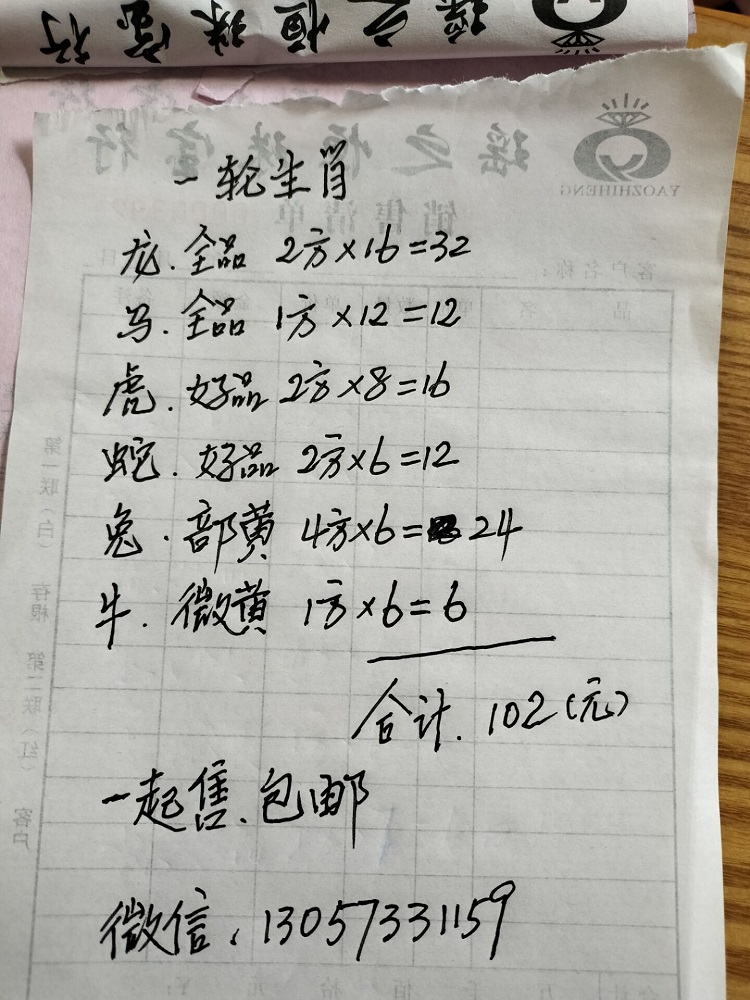 瑶之恒珠宝行
瑶之恒珠宝行
YAOZHIHENG
销售清单
客户名称:
一轮生肖
龙.全品 2方×16=32
马.全品 1方×12=12
虎.好品 2方×8=16
蛇.好品 2方×6=12
兔.部黄 4方×6=24
牛.微黄 1方×6=6
合计.102(元)
一起售.包邮
微信、13057331159
第一联(白) 存根 第二联(红) 客户